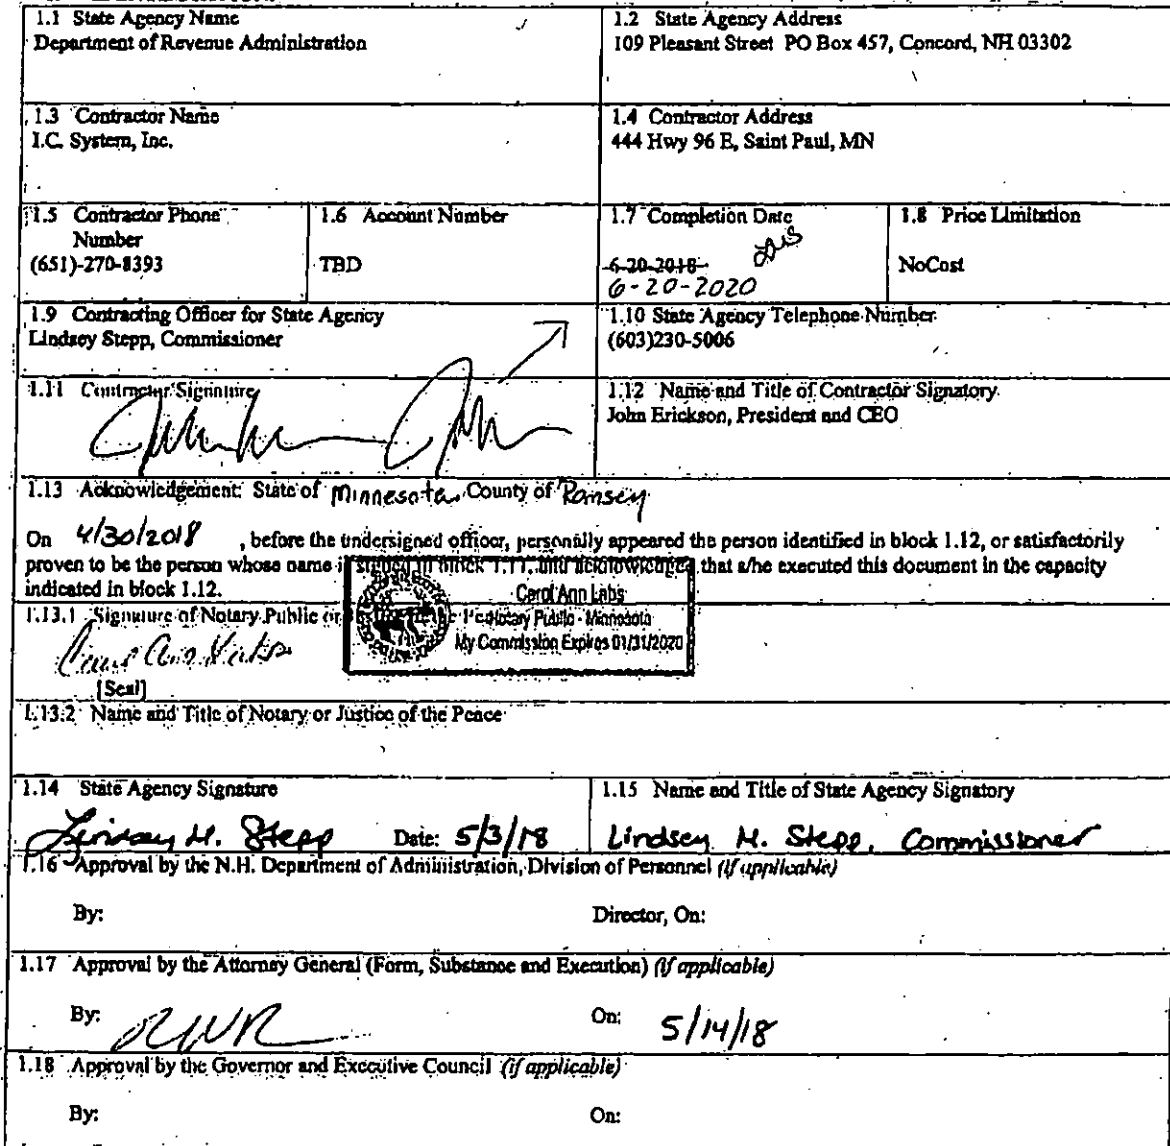 1.1 State Agency Name
Department of Revenue Administration
1.2 State Agency Address
109 Pleasant Street PO Box 457, Concord, NH 03302
1.3 Contractor Name
I.C. System, Inc.
1.4 Contractor Address
444 Hwy 96 E, Saint Paul, MN
1.5 Contractor Phone
Number
(651)-270-8393
1.6 Account Number
TBD
1.7 Completion Date
6-20-2018
6-20-2020
1.8 Price Limitation
NoCost
1.9 Contracting Officer for State Agency
Lindsey Stepp, Commissioner
1.10 State Agency Telephone Number
(603)230-5006
1.11 Contractor Signature
1.12 Name and Title of Contractor Signatory
John Erickson, President and CEO
1.13 Acknowledgement: State of Minnesota, County of Ramsey
On 4/30/2018 , before the undersigned officer, personally appeared the person identified in block 1.12, or satisfactorily
proven to be the person whose name is signed in block 1.11, and acknowledged that s/he executed this document in the capacity
indicated in block 1.12.
Carol Ann Labs
Notary Public - Minnesota
My Commission Expires 01/31/2020
1.13.1 Signature of Notary Public or
[Seal]
1.13.2 Name and Title of Notary or Justice of the Peace
1.14 State Agency Signature
Lindsey M. Stepp Date: 5/3/18
1.15 Name and Title of State Agency Signatory
Lindsey M. Stepp, Commissioner
1.16 Approval by the N.H. Department of Administration, Division of Personnel (if applicable)
By:
Director, On:
1.17 Approval by the Attorney General (Form, Substance and Execution) (if applicable)
By:
On: 5/14/18
1.18 Approval by the Governor and Executive Council (if applicable)
By:
On: